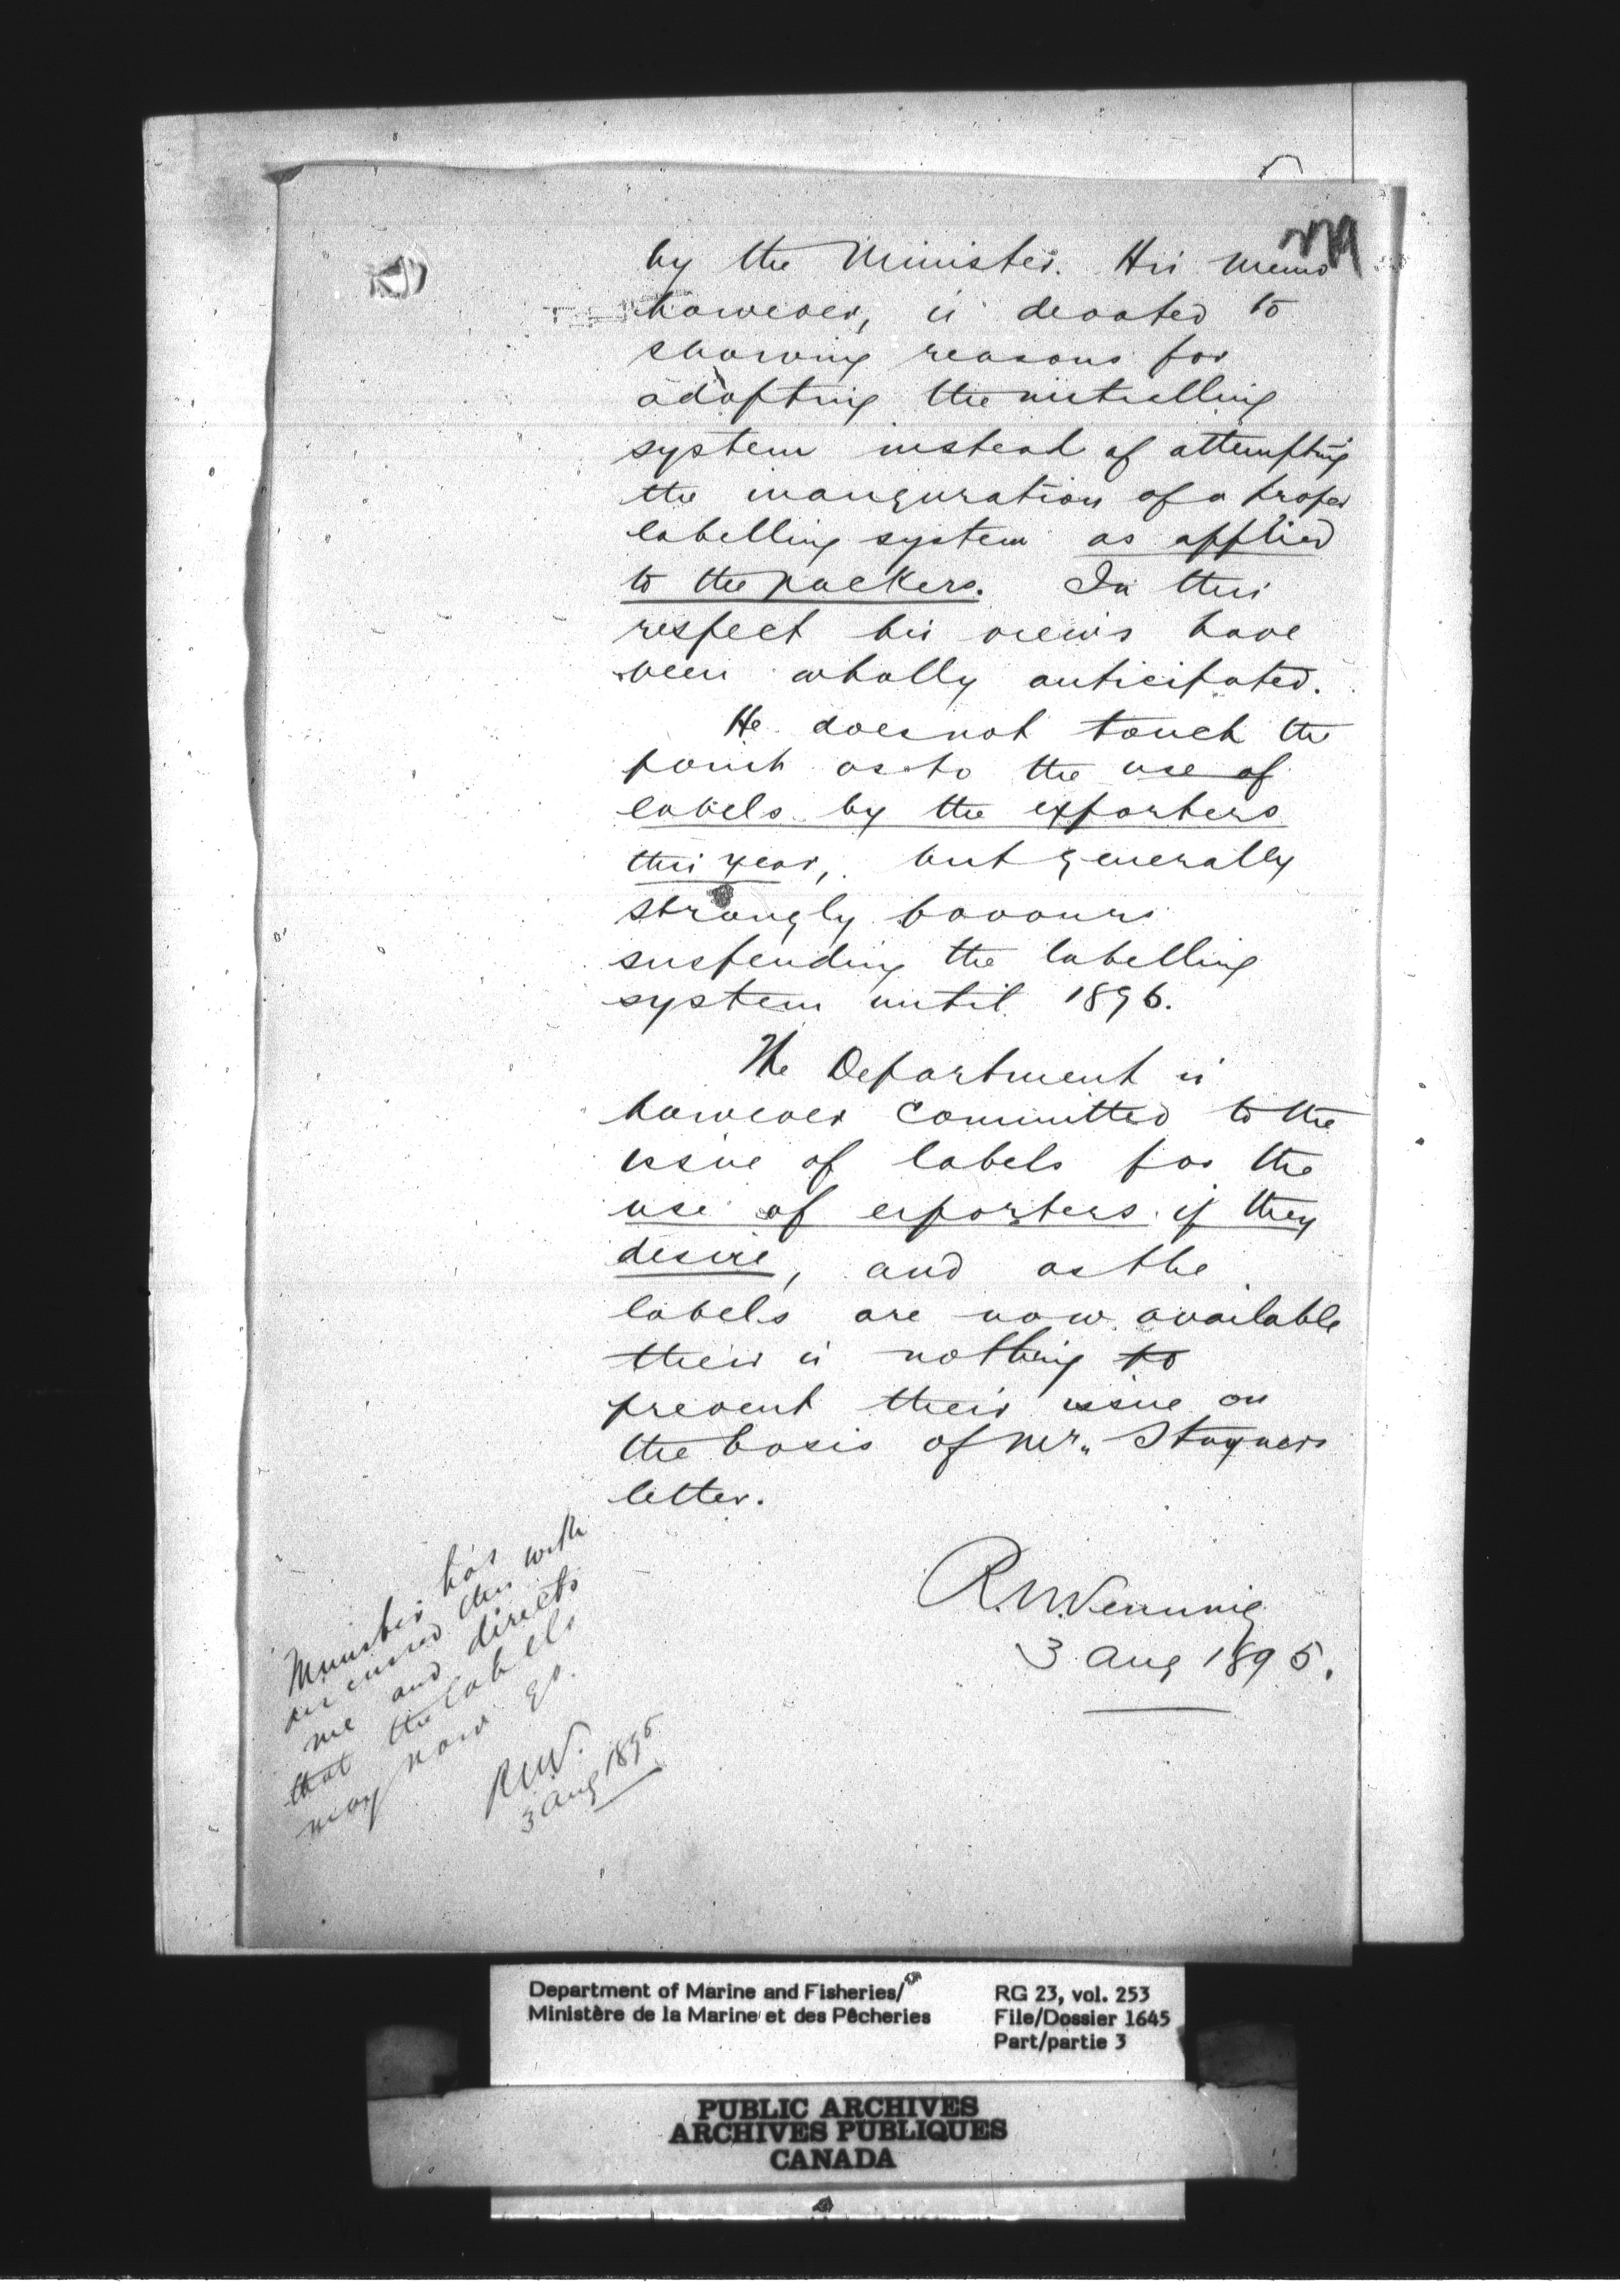 by the Minister. His Memo
however, is devoted to
showing reasons for
adopting the
system instead of attempting
the inauguration of a proper
labelling system as applied
to the packers. In this
respect his views have
been wholly anticipated.
He does not touch the
point as to the use of
labels by the exporters
this year, but generally
strongly favours
suspending the labelling
system until 1896.
The Department is
however committed to the
issue of labels for the
use of exporters if they
desire, and as the
labels are now available
there is nothing to
prevent their issue on
the basis of Mr. Stayners
letter.
R.N. Venning
3 Aug 1895.
Minister has
discussed this with
me and directs
that the labels
may now go.
RNV.
3 Aug 1895
Department of Marine and Fisheries/
Ministère de la Marine et des Pêcheries
RG 23, vol. 253
File/Dossier 1645
Part/partie 3
PUBLIC ARCHIVES
ARCHIVES PUBLIQUES
CANADA